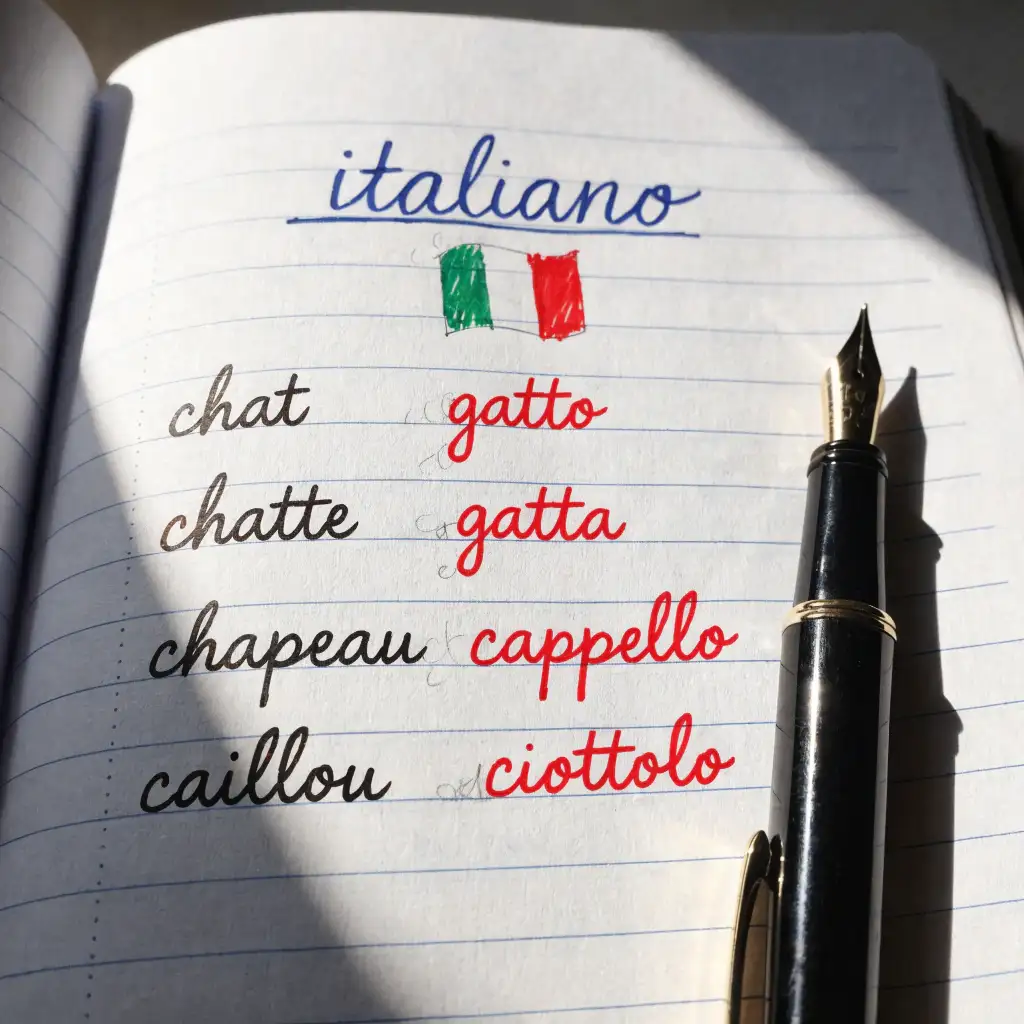 italiano
chat gatto
chatte gatta
chapeau cappello
caillou ciottolo